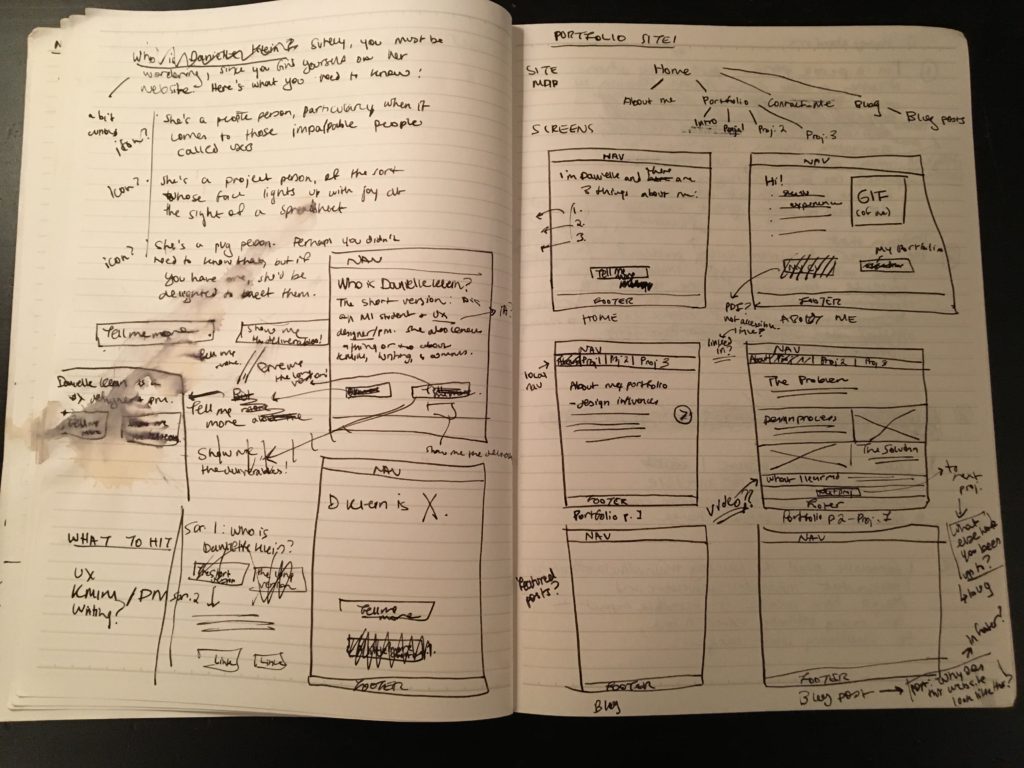 Who is Danielle Klein? Surely, you must be
wondering, since you find yourself on her
website. Here's what you need to know:
a bit
icon?
She's a people person, particularly when it
comes to those impalpable people
called users
Icon?
She's a project person, of the sort
whose face lights up with joy at
the sight of a spreadsheet
icon?
She's a pug person. Perhaps you didn't
need to know that, but if
you have one, she'd be
delighted to meet them.
Tell me more
Show me
the deliverables!
Tell me
more
NAV
Who is Danielle Klein?
The short version:
an MI student & UX
designer/pm. She also knows
a thing or two about
writing, &
Danielle Klein is a
UX designer & pm.
Tell me
more
Tell me
more
Show me
the deliverables!
show me the
NAV
D Klein is X.
Tell me
more
FOOTER
WHAT TO HIT
UX
KMIM / PM
Writing?
Scr. 1: Who is
Danielle Klein?
The short
version
The long
version
Scr. 2
Link
Link
PORTFOLIO SITE!
SITE
MAP
Home
About me
Portfolio
Contact Me
Blog
Blog posts
Intro
Proj 1
Proj. 2
Proj. 3
SCREENS
NAV
I'm Danielle and there are
3 things about me:
1.
2.
3.
Tell me
FOOTER
HOME
NAV
Hi!
experience
GIF
(of me)
My Portfolio
FOOTER
ABOUT ME
PDF?
not accessible
linked
in?
local
nav
NAV
Proj 1 | Proj. 2 | Proj. 3
About my portfolio
- design influences
FOOTER
Portfolio p. 1
NAV
Proj. 2 | Proj. 3
The Problem
Design process
The Solution
What I learned
Footer
Portfolio p 2 - Proj. 1
video??
to
next
proj.
What
else have
you been
up to?
↓ blog
Featured
posts?
NAV
FOOTER
Blog
NAV
FOOTER
Blog post → Why does
this website
look like this?
in
footer?